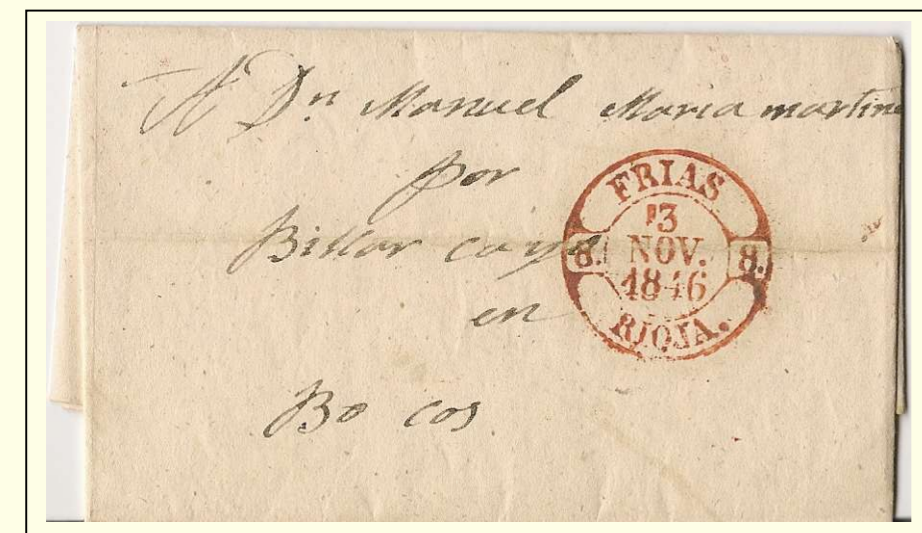 A Dn Manuel Maria martine
por
Billar cayo
en
Bo cos
FRIAS
13
NOV.
1846
8. 8.
RIOJA.